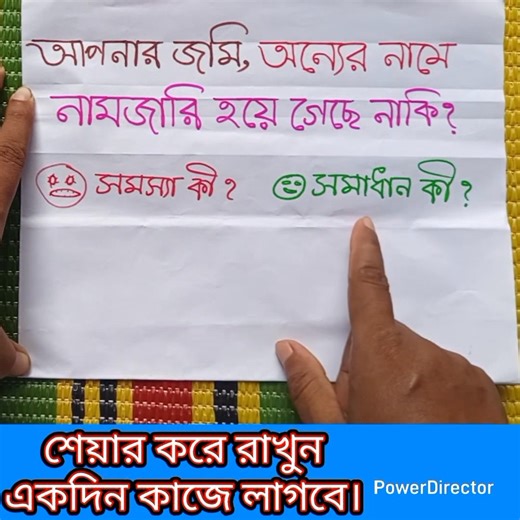 আপনার জমি, অন্যের নামে
নামজারি হয়ে গেছে নাকি?
সমস্যা কী? সমাধান কী?
শেয়ার করে রাখুন
একদিন কাজে লাগবে।
PowerDirector